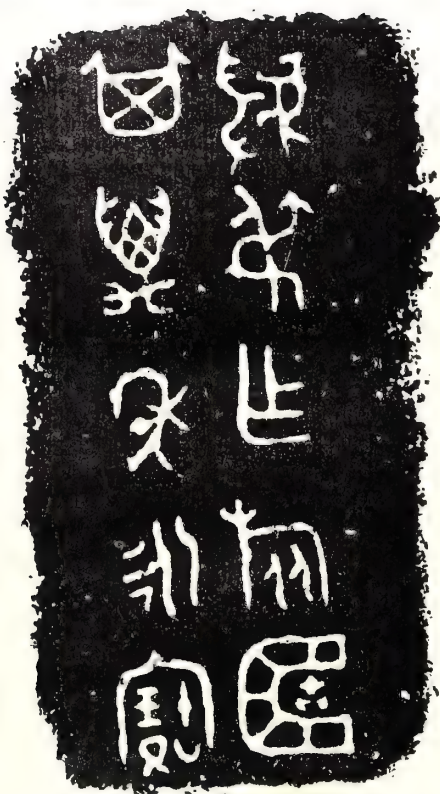 虢叔乍旅𠤳
其萬年永寶